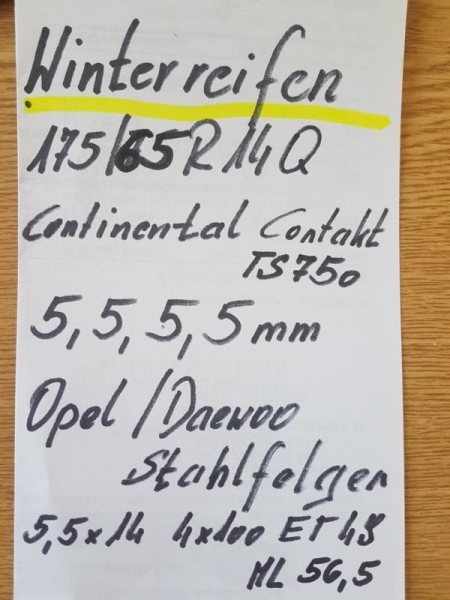 Winterreifen
175/65R14Q
Continental Contakt
TS750
5,5,5,5mm
Opel/Daewoo
Stahlfelgen
5,5x14 4x100 ET49
ML 56,5